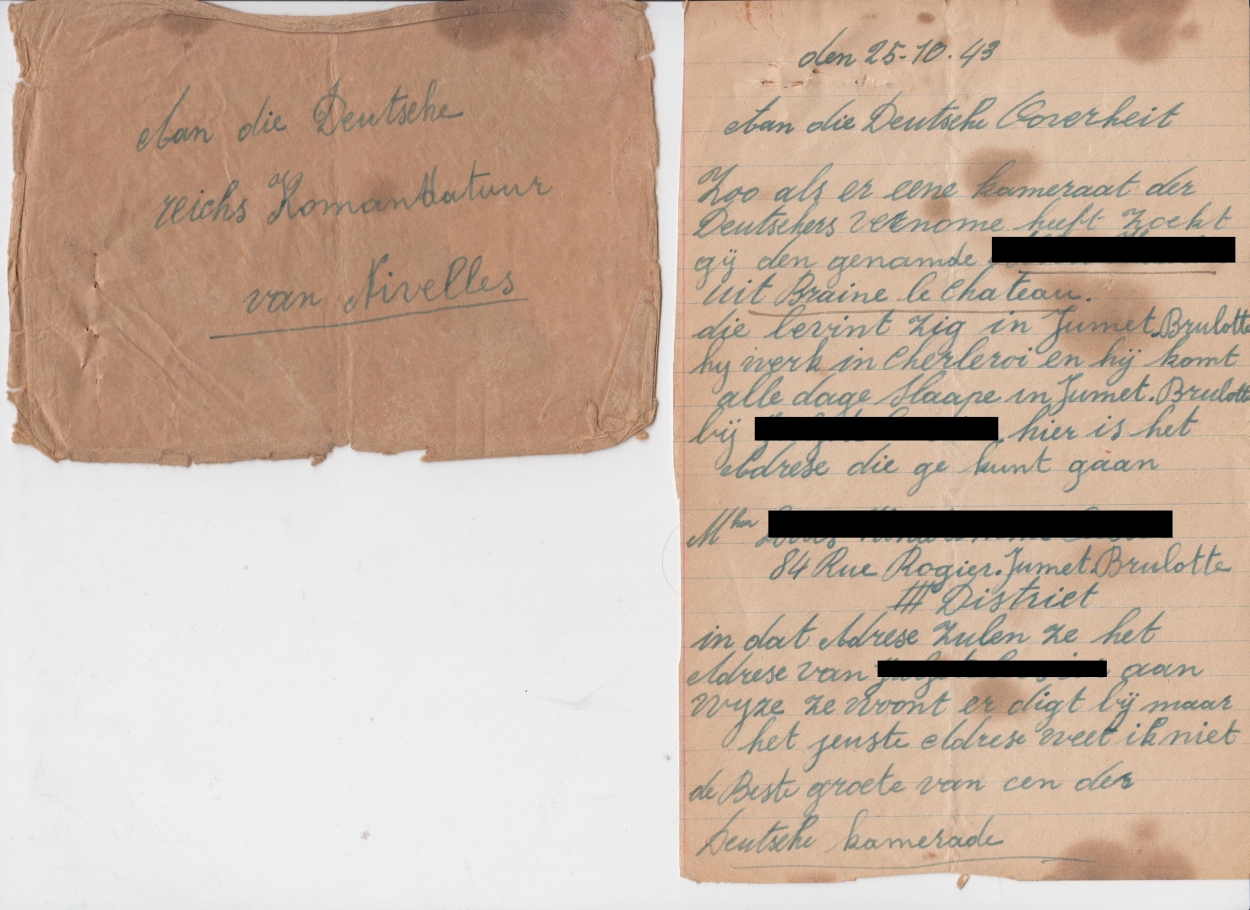 Aan die Deutsche
reichs Komandatuur
van Nivelles
den 25-10-43
Aan die Deutsche Ooverheit
Zoo als er eene kameraat der
Deutschers vernome heeft Zoekt
gij den genamde
uit Braine le Chateau.
die bevint zig in Jumet.Brulotte
hij werk in Cherleroi en hij komt
alle dage slaape in Jumet.Brulotte
bij hier is het
Adrese die ge kunt gaan
84 Rue Rogier.Jumet.Brulotte
III District
in dat Adrese Zulen ze het
Adrese van aan
wyze ze woont er digt bij maar
het jenste Adrese weet ik niet
de Beste groete van een der
Deutsche kamerade